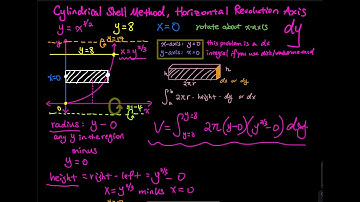 Cylindrical Shell Method, Horizontal Revolution Axis
y = x^(3/2) y=8 x=0 rotate about x-axis dy
y=8
x = y^(2/3)
x-axis: y=0
y-axis: x=0
this problem is a dx
integral if you use disk/washer method
x=0
h
h
2πr
dx or dy
∫_a^b 2πr · height · dy or dx
0
radius: y - 0
any y in the region
minus
y=0
V = ∫_{y=0}^{y=8} 2π(y-0)(y^(2/3)-0) dy
height = right - left = y^(2/3) - 0
x = y^(2/3) minus x = 0